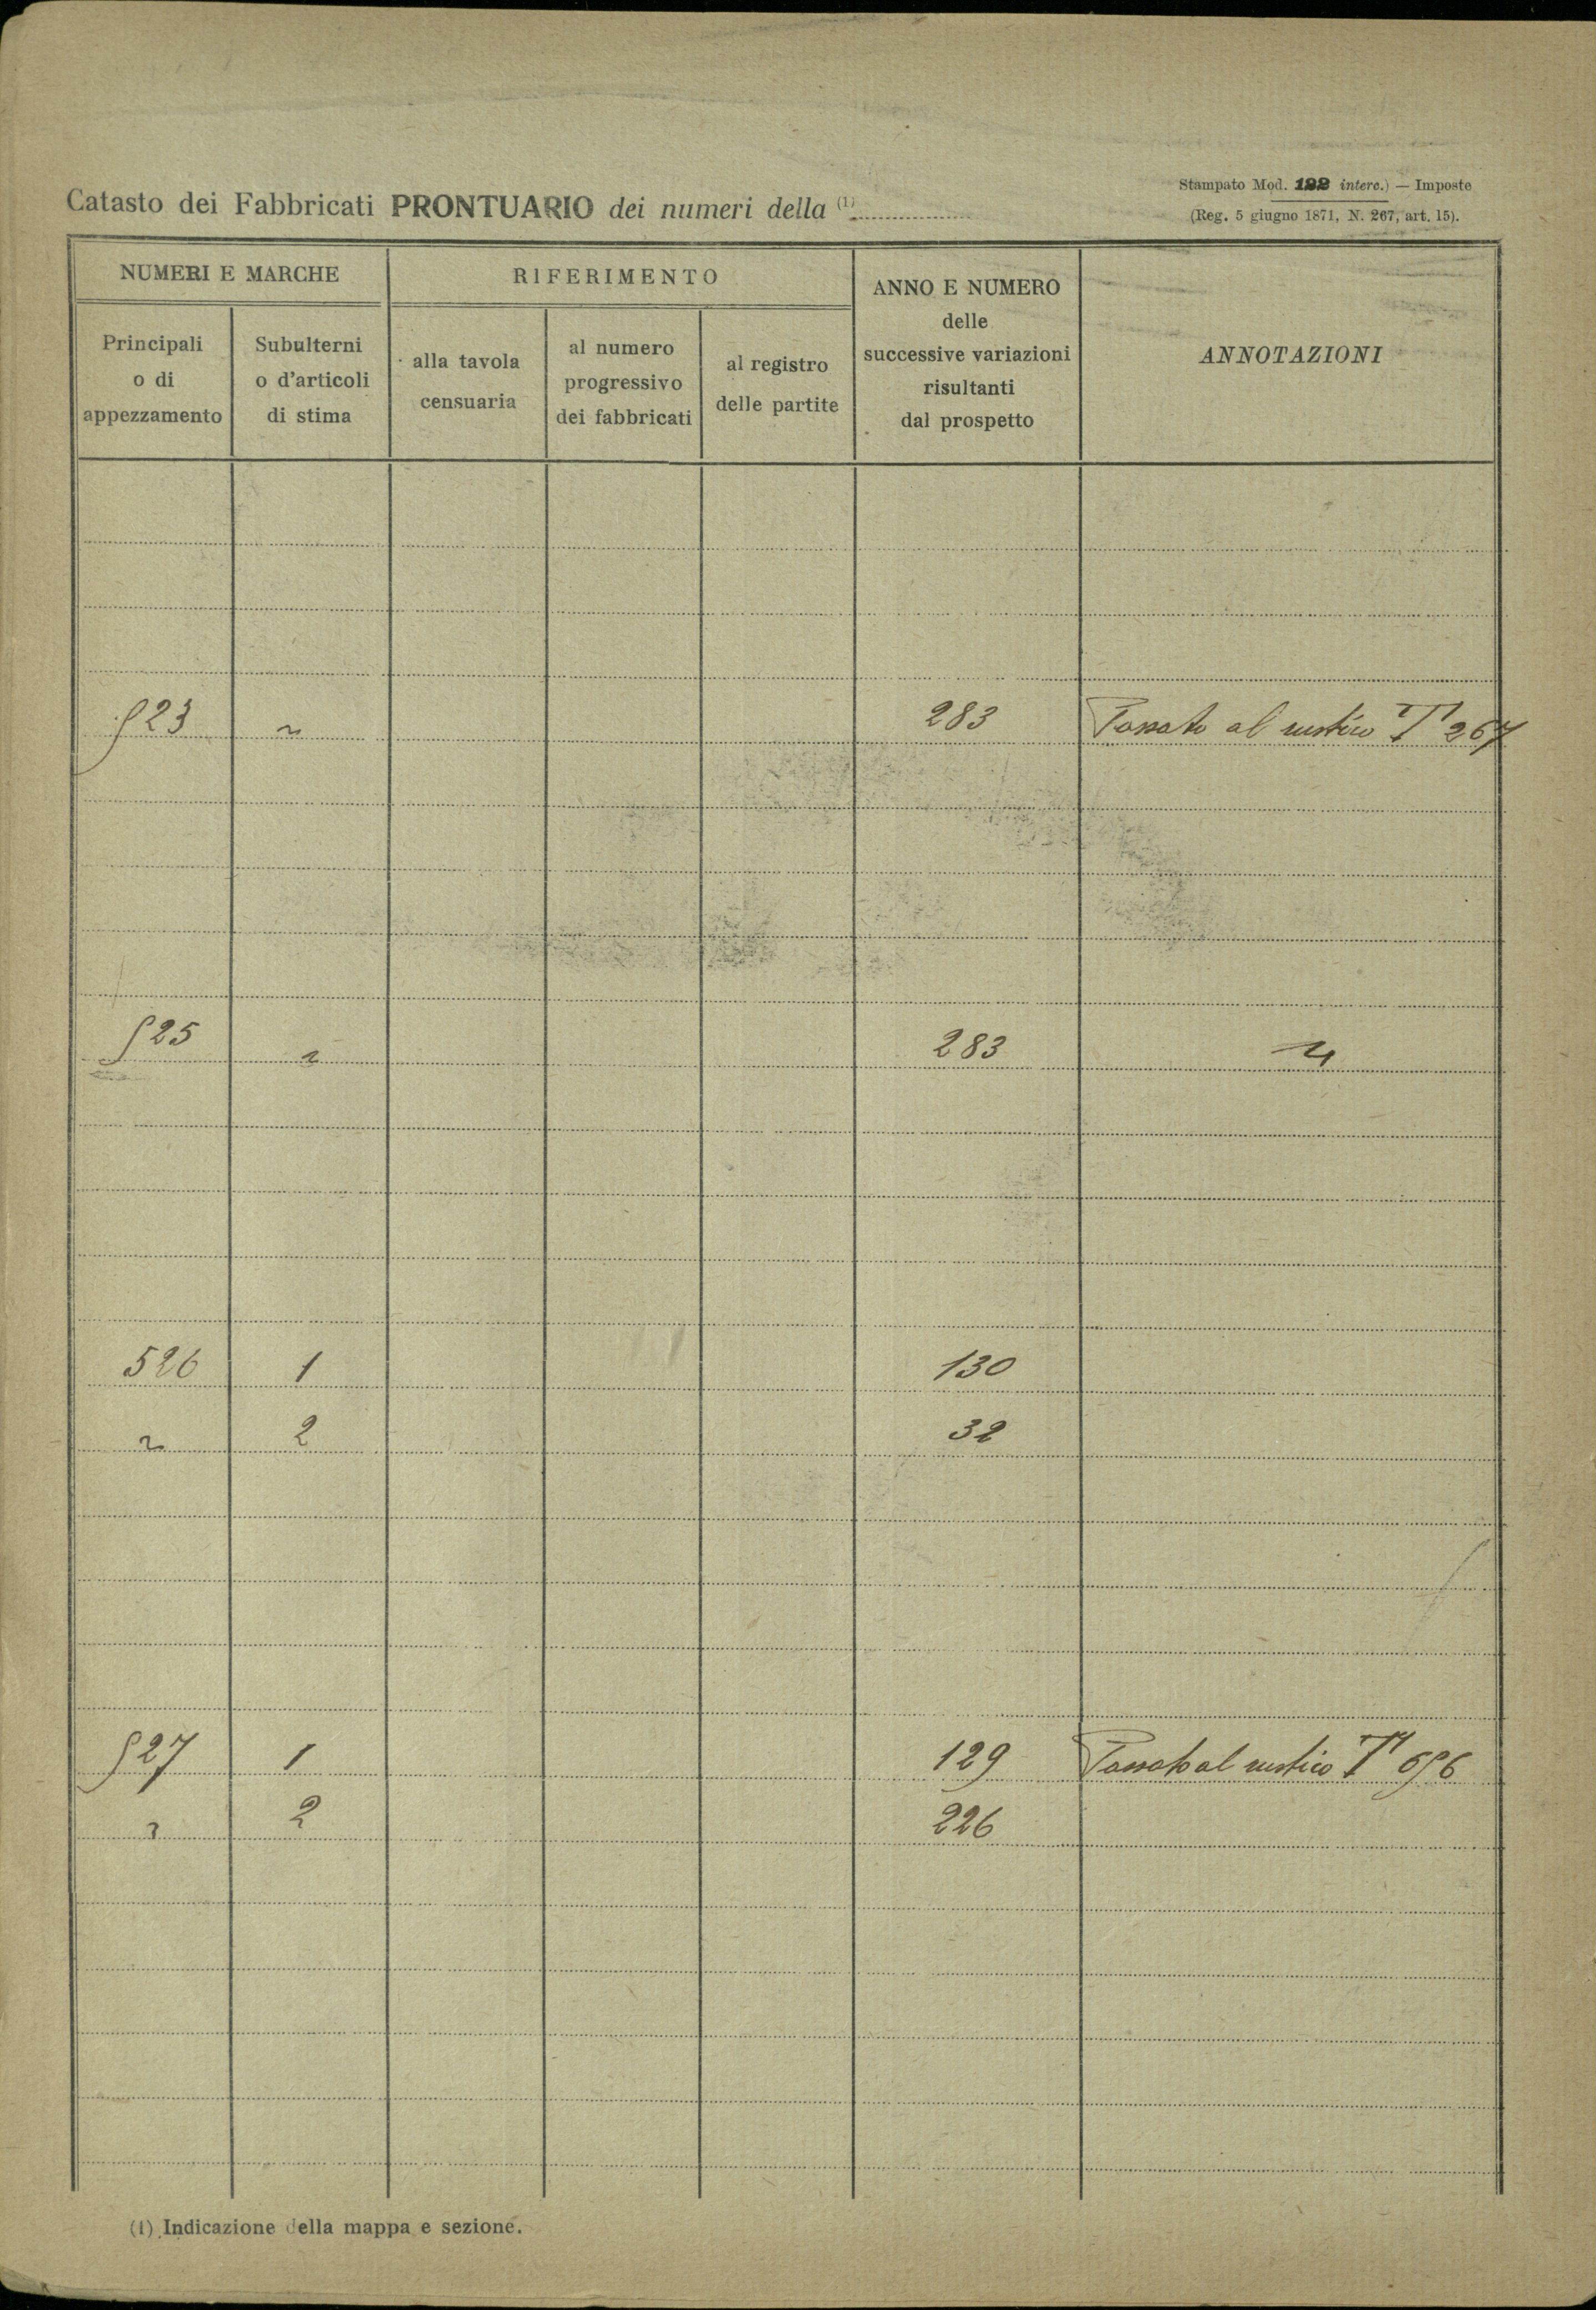 Catasto dei Fabbricati PRONTUARIO dei numeri della (1)
Stampato Mod. 122 interc.) — Imposte
(Reg. 5 giugno 1871, N. 267, art. 15).
NUMERI E MARCHE
RIFERIMENTO
ANNO E NUMERO
delle
successive variazioni
risultanti
dal prospetto
ANNOTAZIONI
Principali
o di
appezzamento
Subulterni
o d'articoli
di stima
alla tavola
censuaria
al numero
progressivo
dei fabbricati
al registro
delle partite
523 " 283 Passato al rustico T 267
525 " 283 "
526 1 130
" 2 32
527 1 129 Passato al rustico T 656
" 2 226
(1) Indicazione della mappa e sezione.